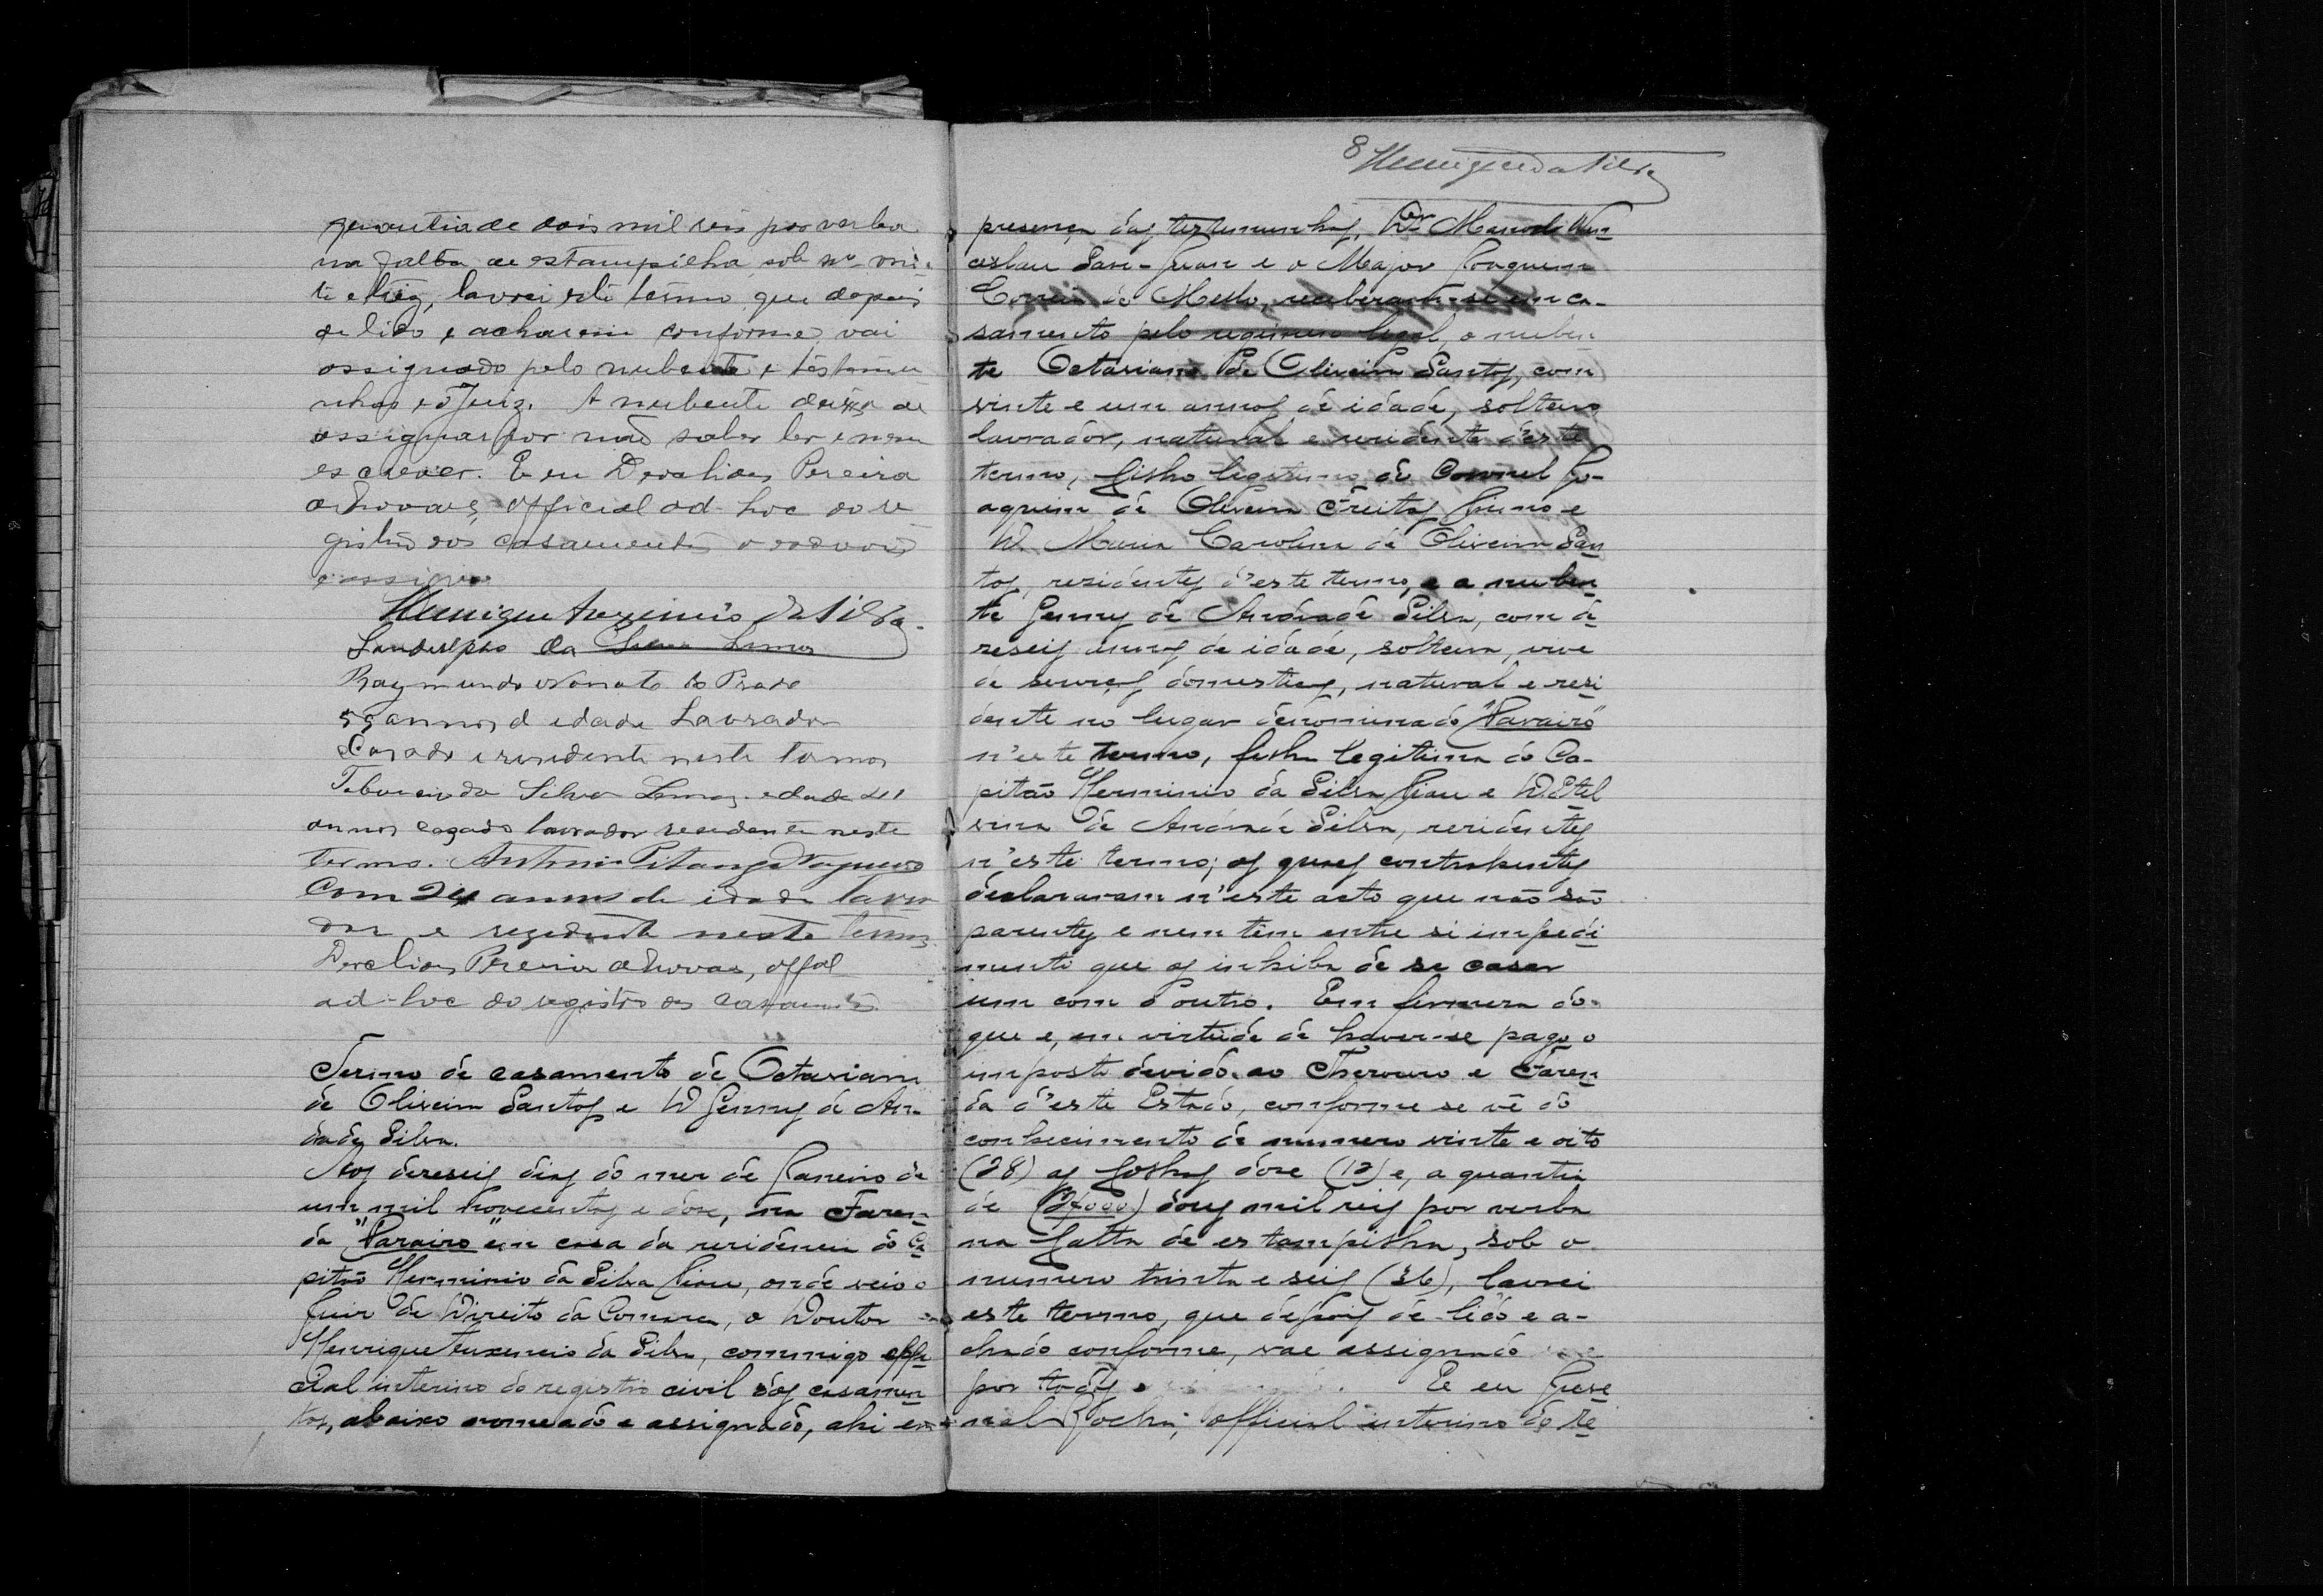 quantia de dois mil reis por verba
na falta de estampilha sob nº vin-
te e trez, lavrei este termo que depois
de lido e acharem conforme, vai
assignado pelo nubente e testemu
nhas e o Juiz. A nubente deixa de
assignar por não saber ler e nem
escrever. E eu Pereira
de Novaes, official ad-hoc do re
gistro dos casamentos o escrevi
e assigno
Henrique da Silva
Landulpho da Silva Lemos
Raymundo Nonato do Prado
55 annos d edade Lavrador
Cazado e rezidente neste termo
Tiburcio da Silva Lemos edade 41
annos cazado lavrador rezidente neste
termo. Antonio Pitanga
Com 24 annos de idade lavra
dor e rezidente neste termo
Pereira de Novaes, offal
ad-hoc do registro de casamentos
Termo de casamento de Octaviano
de Oliveira Santos e D Jenny de An-
drade Silva.
Aos dezeseis dias do mez de Janeiro de
um mil novecentos e doze, na Fazen
da "Paraizo" em casa da rezidencia do Ca
pitão Herminio da Silva Leão, onde veio o
Juiz de Direito da Comarca, o Doutor
Henrique da Silva, commigo offi
cial interino do registro civil dos casamen
tos, abaixo nomeado e assignado, ahi em
8 Henrique da Silva
presença das testemunhas, Dr Manoel Wen
ceslau e o Major Joaquim
Correia de Mello, receberam-se em ca-
samento pelo regimen legal, o nuben
te Octaviano de Oliveira Santos, com
vinte e um annos de idade, solteiro
lavrador, natural e rezidente d'este
termo, filho legitimo do Coronel Jo-
aquim de Oliveira Freitas e
D. Maria Carolina de Oliveira San
tos, rezidentes d'este termo, e a nuben
te Jenny de Andrade Silva, com de
zeseis annos de idade, solteira, vive
de serviços domesticos, natural e rezi
dente no lugar denominado "Paraizo"
n'este termo, filha legitima do Ca-
pitão Herminio da Silva Leão e D. Etel
vina de Andrade Silva, rezidentes
n'este termo; os quaes contrahentes
declararam n'este acto que não são
parentes e nem têm entre si impedi
mento que os inhiba de se casar
um com o outro. Em firmeza do
que e, em virtude de haver-se pago o
imposto devido ao Thezouro e Fazen
da d'este Estado, conforme se vê do
conhecimento de numero vinte e oito
(28) as folhas doze (12) e, a quantia
de (2$000) dous mil reis por verba
na falta de estampilha, sob o
numero trinta e seis (36), lavrei
este termo, que depois de lido e a-
chado conforme, vae assignado
por todos E eu Juve
nal Rocha, official interino do re